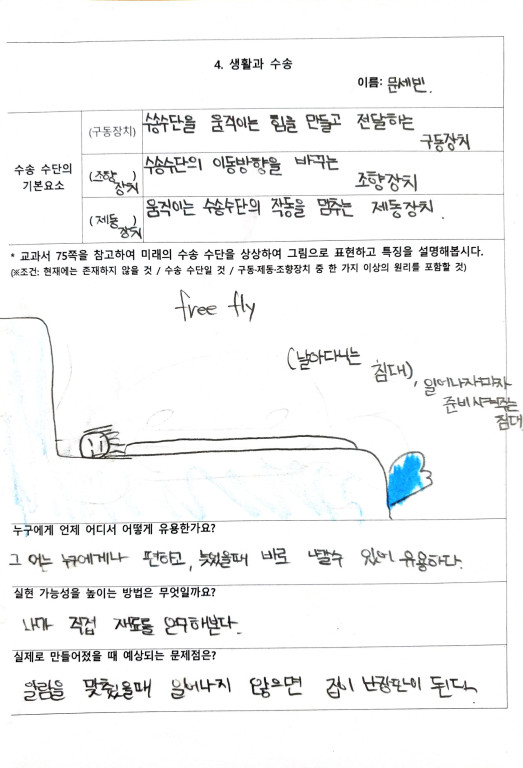 4. 생활과 수송
이름: 문세빈.
수송 수단의
기본요소
(구동장치) 수송수단을 움직이는 힘을 만들고 전달하는
구동장치
(조향장치) 수송수단의 이동방향을 바꾸는
조향장치
(제동장치) 움직이는 수송수단의 작동을 멈추는 제동장치.
* 교과서 75쪽을 참고하여 미래의 수송 수단을 상상하여 그림으로 표현하고 특징을 설명해봅시다.
(※조건: 현재에는 존재하지 않을 것 / 수송 수단일 것 / 구동·제동·조향장치 중 한 가지 이상의 원리를 포함할 것)
free fly
(날아다니는
침대),
일어나자마자
준비시켜주는
침대
누구에게 언제 어디서 어떻게 유용한가요?
그 어느 누구에게나 편하고, 늦었을때 바로 나갈수 있어 유용하다.
실현 가능성을 높이는 방법은 무엇일까요?
내가 직접 재료를 연구해본다.
실제로 만들어졌을 때 예상되는 문제점은?
알람을 맞췄을때 일어나지 않으면 집이 난장판이 된다.